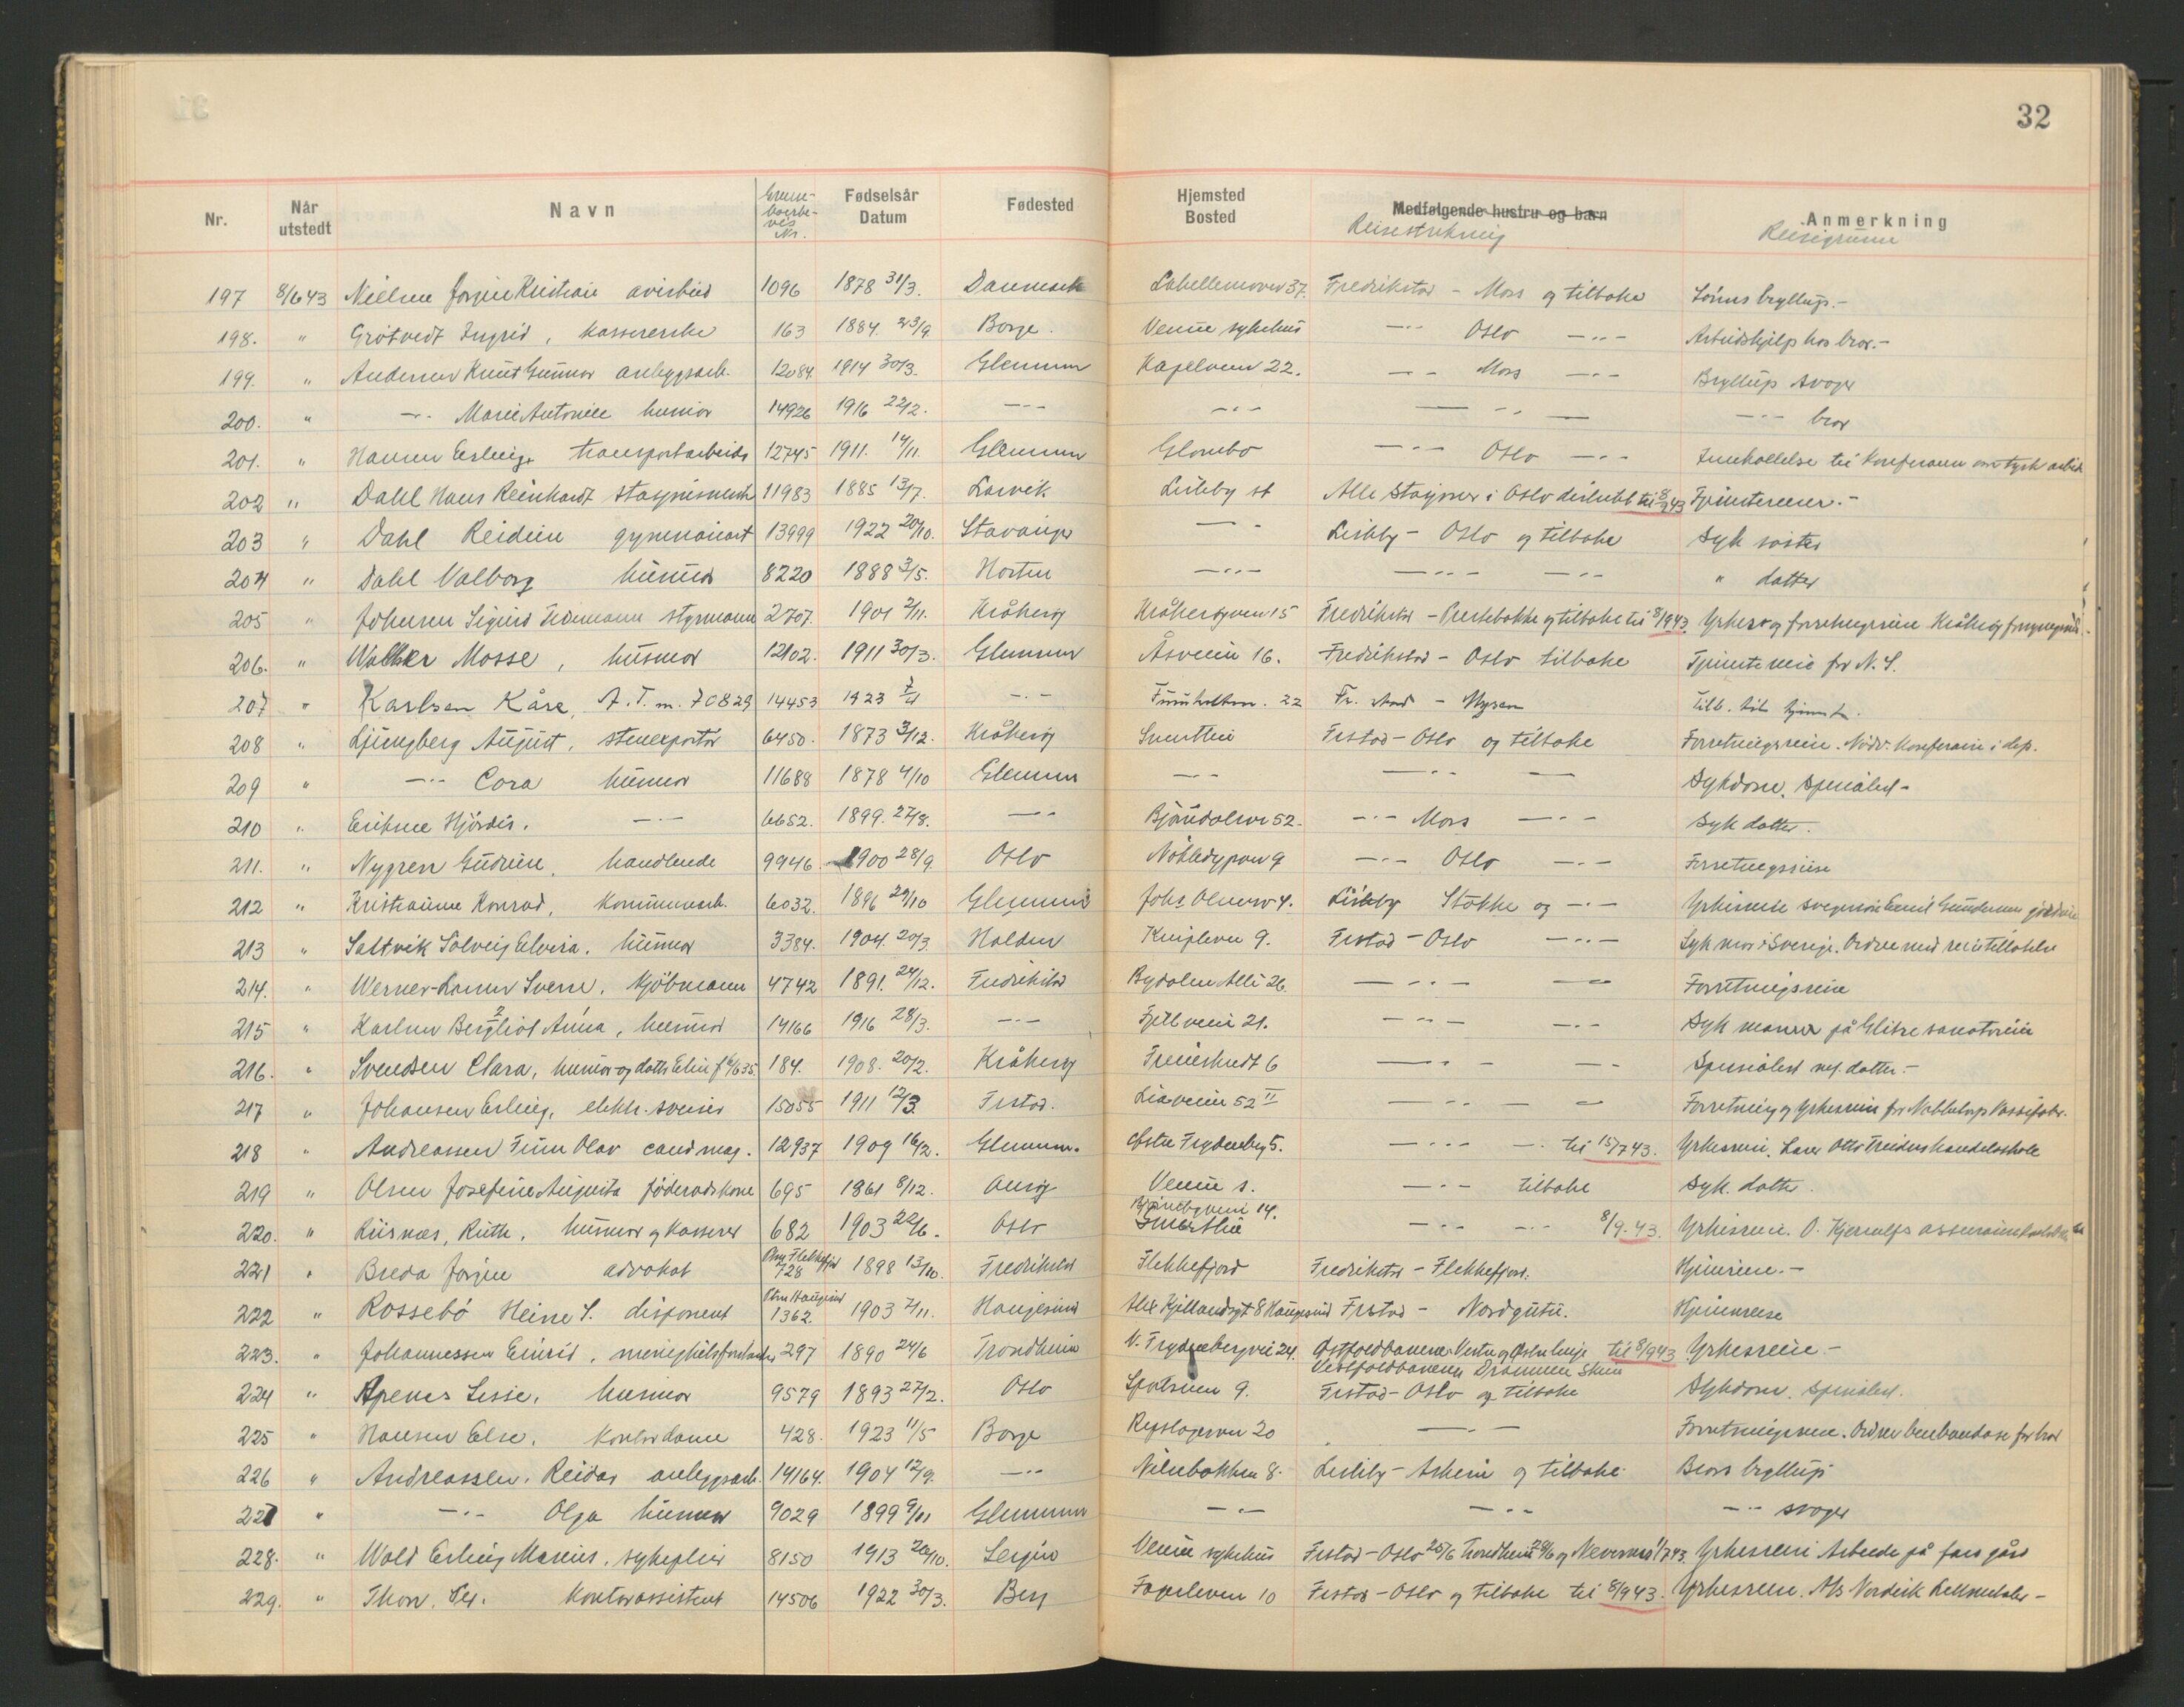 32
Nr. Når utstedt Navn Grense-boerbe-vis Nr. Fødselsår Datum Fødested Hjemsted Bosted Medfølgende hustru og barn Reisestrekning Anmerkning Reisegrunn
197 8/6 43 Nielsen Jørgen Kristian avisbud 1096 1878 31/3. Danmark Labellemoven 37. Fredrikstad - Moss og tilbake Sønns bryllup.-
198. " Grøtvedt Ingrid, kassererske 163 1884. 23/9 Borge. Venne sykehus -"- Oslo -"- Arbeidshjelp hos bror.-
199. " Andersen Knut Gunnar anleggsarb. 12084. 1914 30/3. Glemmen Kapelveien 22. -"- Moss -"- Bryllup svoger
200. " -"- Marie Antonie husmor 14926 1916 22/2. -"- -"- -"- -"- bror
201. " Hansen Erling. transportarbeider 12745 1911. 14/11. Glemmen Glombo -"- Oslo -"- Innkallelse til konferanse om tysk arbeid
202 " Dahl Hans Reinhardt stasjonsmester 11983 1885 13/7. Larvik Lisleby st Alle stasjoner i Oslo distrikt til 8/9 43 Tjenestereiser.-
203 " Dahl Reidun gymnasiast 13999 1922 20/10. Stavanger -"- Lisleby - Oslo og tilbake Syk søster
204 " Dahl Valborg husmor 8220 1888 3/5. Horten -"- -"- -"- " datter
205 " Johansen Sigurd Hermann styrmann 2707. 1901 2/11. Kråkerøy Kråkerøyven 15 Fredrikstad - Prestebakke og tilbake til 8/9 43. Yrkes og forretningsreise Kråkerøy forsyningsnd.
206. " Walker Mosse, husmor 12102. 1911 30/3. Glemmen Åsveien 16. Fredrikstad - Oslo tilbake Tjenestereise for N.S.
207 " Karlsen Kåre, A.T.m. 70829 14453 1923 7/4 -"- Furuholtvn. 22 Fr. stad - Mysen Tilb. til tjenest.
208 " Ljungberg August, stenexportør 6450. 1873 3/12. Kråkerøy Smertu Frstad - Oslo og tilbake Forretningsreise. Nødv. konferanse i dep.
209 " -"- Cora husmor 11688 1878 4/10 Glemmen -"- -"- Sykdom. Spesialist-
210 " Eriksen Hjördis. -"- 6652. 1899. 27/8. -"- Bjørndalsvn 52. -"- Moss -"- Syk datter.
211. " Nygren Gudrun, handlende 9946 1900 28/9. Oslo Nøkledypveien 9 -"- Oslo -"- Forretningsreise
212 " Kristiansen Konrad, kommunearb. 6032. 1896 29/10 Glemmen Johs. Olsensv 4. Lisleby Stokke og -"- Yrkesreise svigersøn Emil Gundersen
213 " Saltvik Solveig Elvira. husmor 3384. 1904. 20/3. Halden Knipleveien 9. Frstad - Oslo -"- Syk mor i Sverige. Ordne med reisetillatelse
214. " Werner-Larsen Sverre, kjøbmann 4742 1891. 24/12. Fredrikstad Bydalen Alle 26. -"- -"- Forretningsreise
215 " Karlsen Bergliot Anna, husmor 14166 1916 28/3. -"- Fjellveien 21. -"- -"- Syk mann på Glitre sanatorium
216. " Svendsen Clara, husmor og datter Elin f 6/6 35. 184. 1908. 20/2. Kråkerøy 6 -"- -"- Spesialist m. datter.-
217 " Johansen Erling, elektr. sveiser 15055 1911 12/3. Frstad. Liaveien 52 II -"- -"- Forretning og yrkesreise for
218 " Andreassen Finn Olav cand mag. 12937 1909 16/2. Glemmen. Østre Frydenberg 5. -"- til 15/7 43. Yrkesreise. Lærer Otto Treiders handelsskole
219 " Olsen Josefine Augusta føderådskone 695 1861 8/12. Onsøy Venne s. -"- tilbake Syk. datter.
220. " Risnæs, Ruth, husmor og kasserer 682 1903 22/6. Oslo 14. -"- -"- 8/9. 43. Yrkesreise. O. Kjerulfs
221 " Breda Jørgen advokat Pm Flekkefjord 728 1898 13/10. Fredrikstad Flekkefjord Fredrikstad - Flekkefjord. Hjemreise.-
222 " Rossebö Heine S. disponent Pkm Haugesund 1362. 1903 2/11. Haugesund Alex Kjellandsgt 8 Haugesund Frstad - Nordgutu. Hjemreise
223. " Johannessen Einrid, menighetsforstander 297 1890 24/6 Trondheim V. Frydenbergvei 24. Østfoldbanene Vestre og Østre linje til 8/9 43 Yrkesreise-
Vestfoldbanene Drammen Skien
224 " Apenes Lissie, husmor 9579 1893 27/2. Oslo 9. Frstad - Oslo og tilbake Sykdom. Spesialist.
225 " Hansen Else, kontordame 428. 1923 11/5 Borge Repslagerven 20 -"- Forretningsreise. Ordner benbandasje for bror
226 " Andreassen, Reidar anleggsarb. 14164. 1904 12/9. -"- Nilsebakken 8. Lisleby - Askim og tilbake Brors bryllup
227 " -"- Olga husmor 9029 1899 9/11 Glemmen -"- -"- -"- svoger
228. " Wold Erling Marius, sykepleier 8150 1913 26/10. Venne sykehus Frstad - Oslo 25/6 Trondheim 29/6 og 1/7 43. Yrkesreise Arbeide på fars gård
229. " Thon, Per. Kontorassistent 14506 1922 30/3. Berg 10 Frstad - Oslo og tilbake til 8/9 43. Yrkesreise. A/s Nordisk